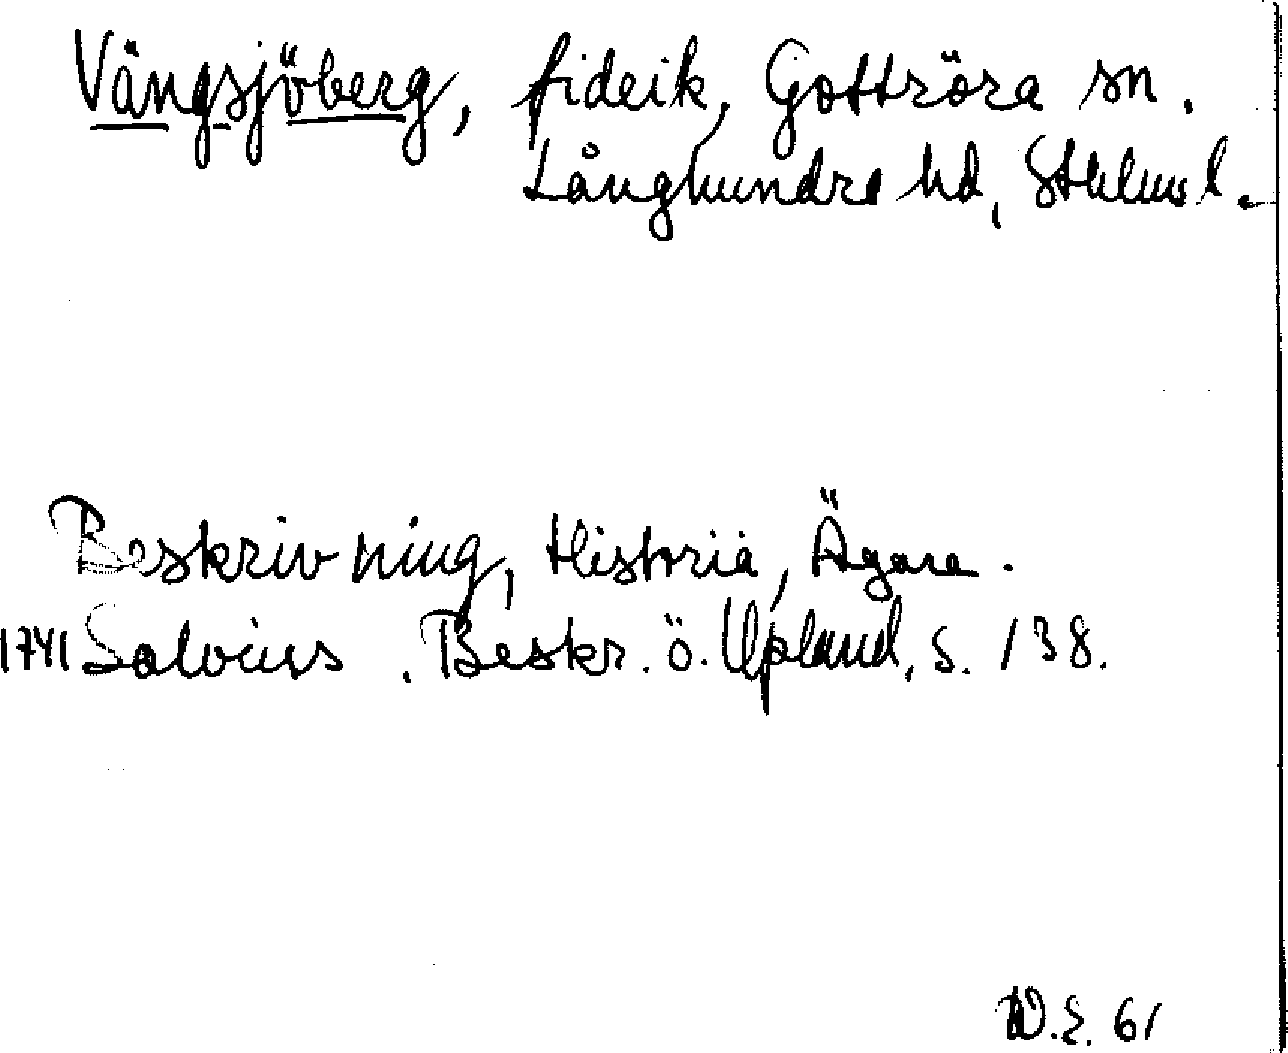 Vängsjöberg, fideik, Gottröra sn.
Långhundra hd, Sthlms l.
Beskrivning, Historia, Ägare.
1741 Salvius. Beskr. ö. Upland, s. 138.
W.E. 61